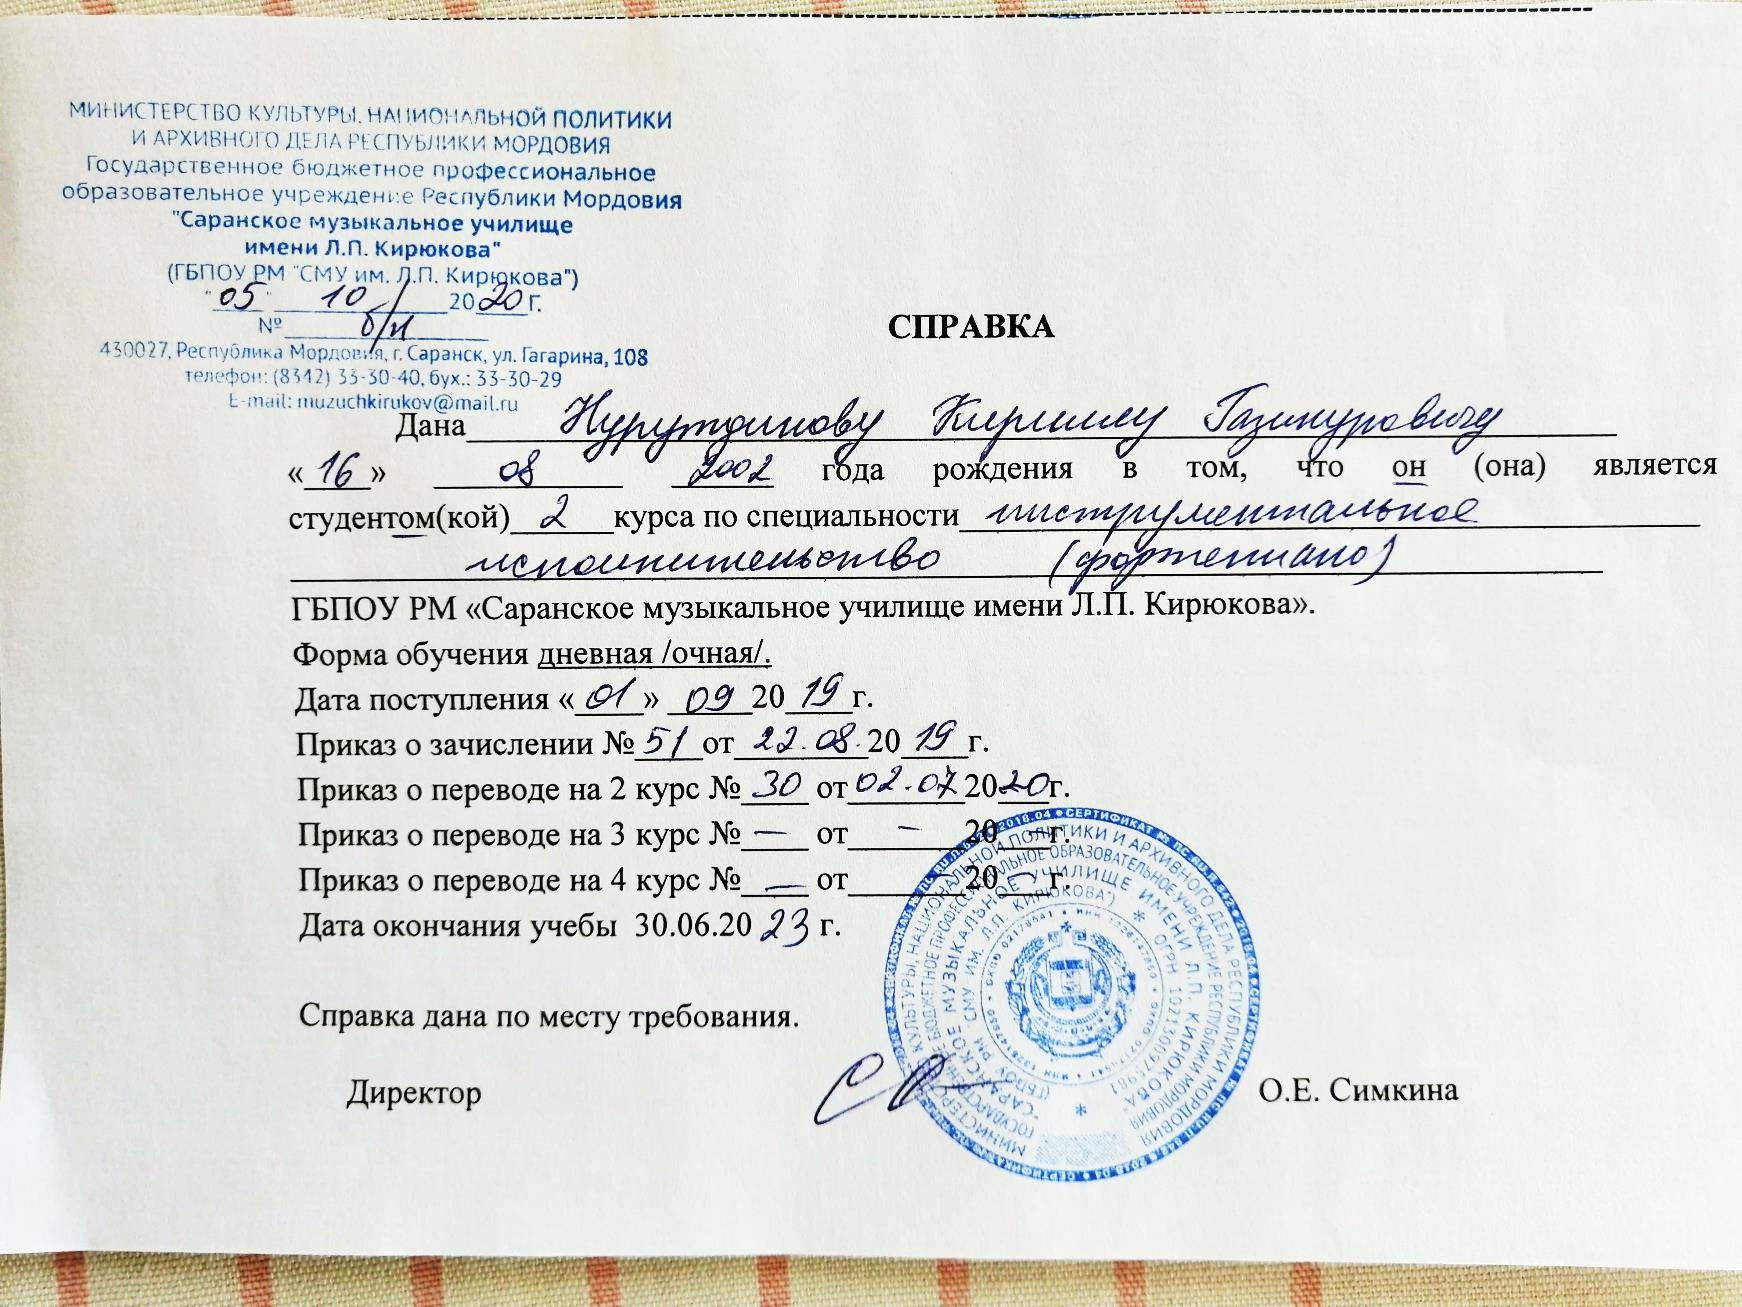 МИНИСТЕРСТВО КУЛЬТУРЫ, НАЦИОНАЛЬНОЙ ПОЛИТИКИ
И АРХИВНОГО ДЕЛА РЕСПУБЛИКИ МОРДОВИЯ
Государственное бюджетное профессиональное
образовательное учреждение Республики Мордовия
"Саранское музыкальное училище
имени Л.П. Кирюкова"
(ГБПОУ РМ "СМУ им. Л.П. Кирюкова")
"05" 10 2020г.
№ б/н
430027, Республика Мордовия, г. Саранск, ул. Гагарина, 108
телефон: (8342) 33-30-40, бух.: 33-30-29
E-mail: muzuchkirukov@mail.ru
СПРАВКА
Дана Нурутдинову Кириллу Газинуровичу
«16» 08 2002 года рождения в том, что он (она) является
студентом(кой) 2 курса по специальности инструментальное
исполнительство (фортепиано)
ГБПОУ РМ «Саранское музыкальное училище имени Л.П. Кирюкова».
Форма обучения дневная /очная/.
Дата поступления «01» 09 2019г.
Приказ о зачислении № 51 от 22.08.2019г.
Приказ о переводе на 2 курс № 30 от 02.07 2020г.
Приказ о переводе на 3 курс № — от – 20 – г.
Приказ о переводе на 4 курс № — от — 20 – г.
Дата окончания учебы 30.06.20 23 г.
Справка дана по месту требования.
Директор О.Е. Симкина
МИНИСТЕРСТВО КУЛЬТУРЫ, НАЦИОНАЛЬНОЙ ПОЛИТИКИ И АРХИВНОГО ДЕЛА РЕСПУБЛИКИ МОРДОВИЯ
ГОСУДАРСТВЕННОЕ БЮДЖЕТНОЕ ПРОФЕССИОНАЛЬНОЕ ОБРАЗОВАТЕЛЬНОЕ УЧРЕЖДЕНИЕ РЕСПУБЛИКИ МОРДОВИЯ
"САРАНСКОЕ МУЗЫКАЛЬНОЕ УЧИЛИЩЕ ИМЕНИ Л.П. КИРЮКОВА"
(ГБПОУ РМ "СМУ ИМ. Л.П. КИРЮКОВА") * ОГРН 1021300975981